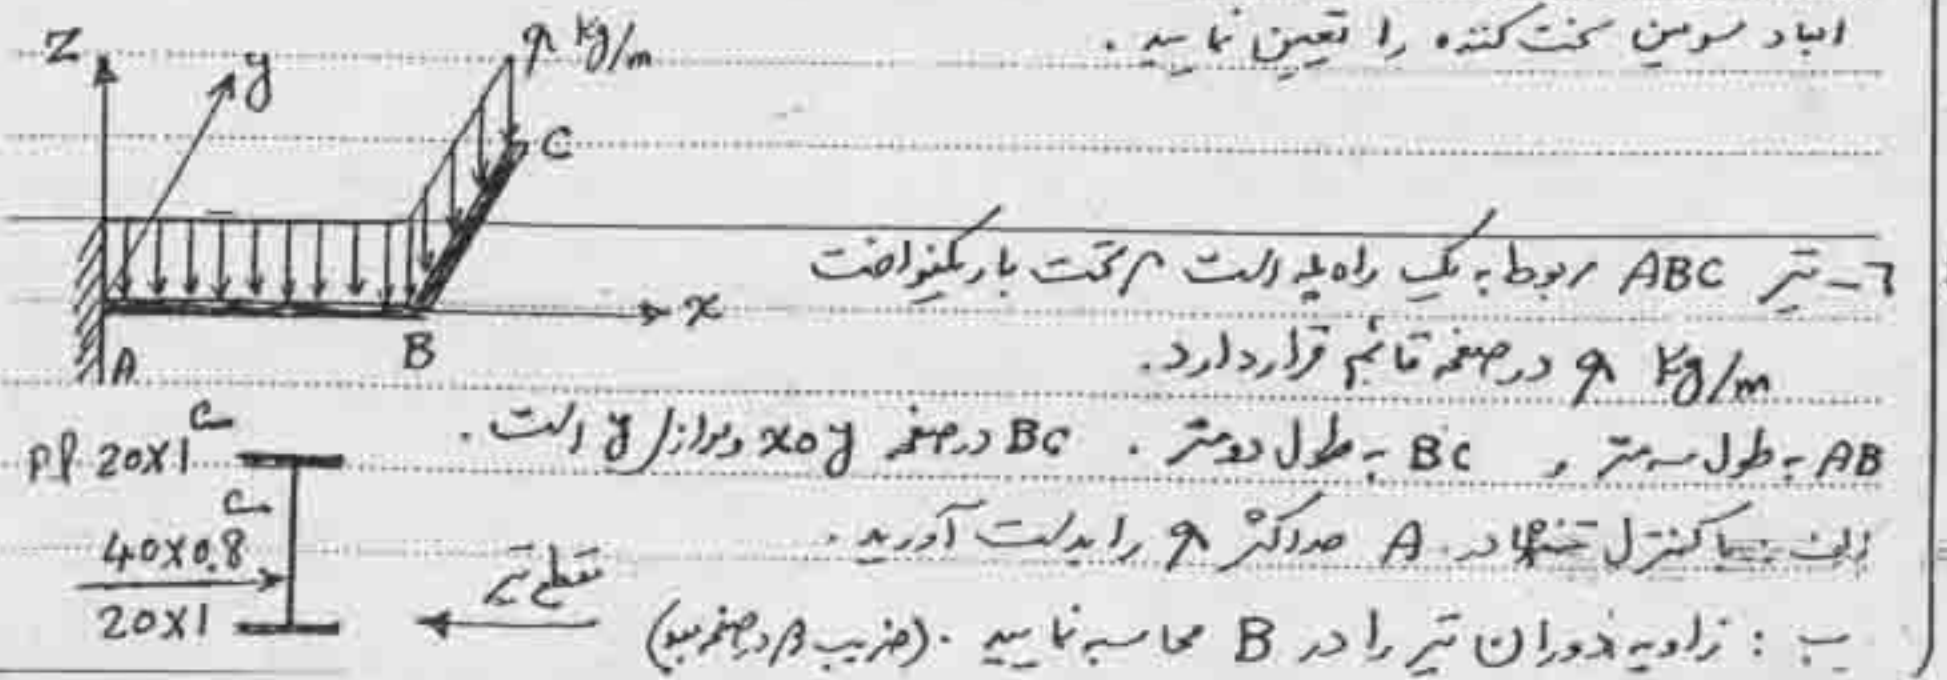 ابعاد سومین سخت کننده را تعیین نمایید .
Z
y
q kg/m
C
x
B
A
٦- تیر ABC مربوط به یک راه پله است که تحت بار یکنواخت
q kg/m در صفحه قائم قرار دارد.
AB به طول سه متر و BC به طول دو متر . BC در صفحه xoy و موازی y است .
الف : با کنترل تنشها در A حداکثر q را بدست آورید .
ب : زاویه دوران تیر را در B محاسبه نمایید . (ضریب β در صفر)
pl 20X1
40X0.8
20X1
مقطع تیر